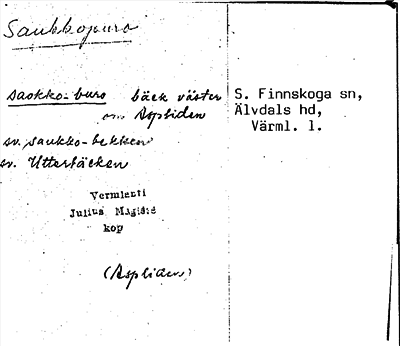 Saukkopuro
saokko-buro bäck väster
om Aspliden
sv. saukko-bekken
sv. Utterbäcken
Vermlenti
Julius Mägiste
kop
(Aspliden)
S. Finnskoga sn,
Älvdals hd,
Värml. l.